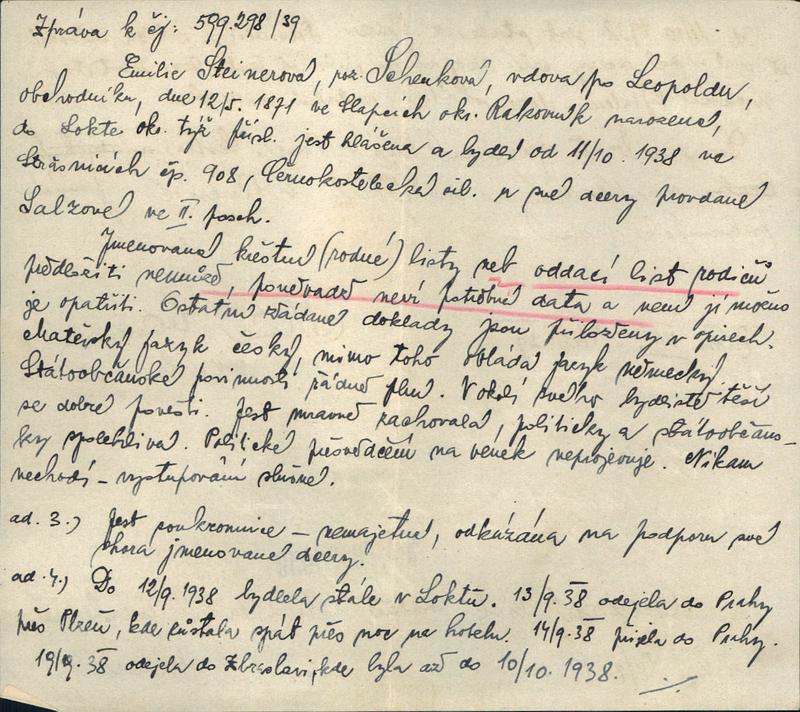 Zpráva k čj: 599.298/39
Emilie Steinerová, roz. Schenková, vdova po Leopoldu,
obchodníku, dne 12/5. 1871 ve Slapcích okr. Rakovník narozená,
do Lokte okr. týž přísl. jest hlášena a bydlí od 11/10. 1938 ve
Strašnicích čp. 908, Černokostelecká sil. u své dcery provdané
Salzové ve II. posch.
Jmenovaná křestní (rodné) listy neb oddací list rodičů
předložiti nemůže, poněvadž neví potřebná data a není jí možno
je opatřiti. Ostatní žádané doklady jsou přiloženy v opisech.
Mateřský jazyk český, mimo toho ovládá jazyk německý.
Státoobčanské povinnosti řádně plní. V okolí svého bydliště těší
se dobré pověsti. Jest mravně zachovalá, politicky a státoobčans-
ky spolehlivá. Politické přesvědčení na venek neprojevuje. Nikam
nechodí – vystupování slušné.
ad. 3.) Jest soukromnice – nemajetná, odkázána na podporu své
shora jmenované dcery.
ad. 4.) Do 12/9. 1938 bydlela stále v Loktu. 13/9. 38 odejela do Prahy
přes Plzeň, kde zůstala spát přes noc na hotelu. 14/9. 38 přijela do Prahy.
19/9. 38 odejela do Zbraslavi, kde byla až do 10/10. 1938.